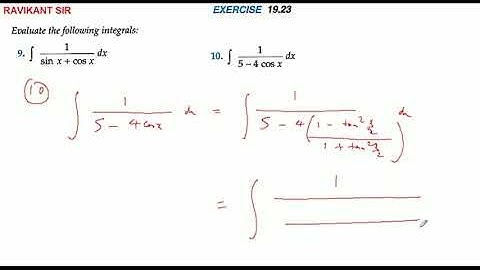 RAVIKANT SIR EXERCISE 19.23
Evaluate the following integrals:
9. ∫ 1/(sin x + cos x) dx 10. ∫ 1/(5 – 4 cos x) dx
(10)
∫ 1/(5 – 4 cos x) dx = ∫ 1/(5 – 4((1 – tan² x/2)/(1 + tan² x/2))) dx
= ∫ 1/